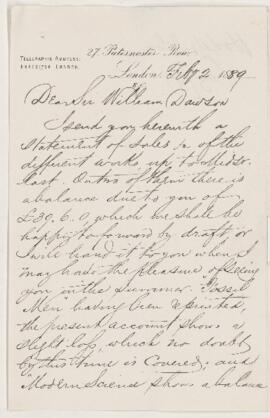 27 Paternoster Row,
TELEGRAPHIC ADDRESS:
London, Feby 2 1889
Dear Sir William Dawson
I send you herewith a
statement of sales &c of the
different works up to
last. On two of them there is
a balance due to you of
£30.6.0, which we shall be
happy to forward by draft or
I will hand it to you when I
may have the pleasure of seeing
you in the summer. "Fossil
Men" having been reprinted,
the present account shows a
slight loss, which no doubt
by this time is covered; and
"Modern Science" shows a balance